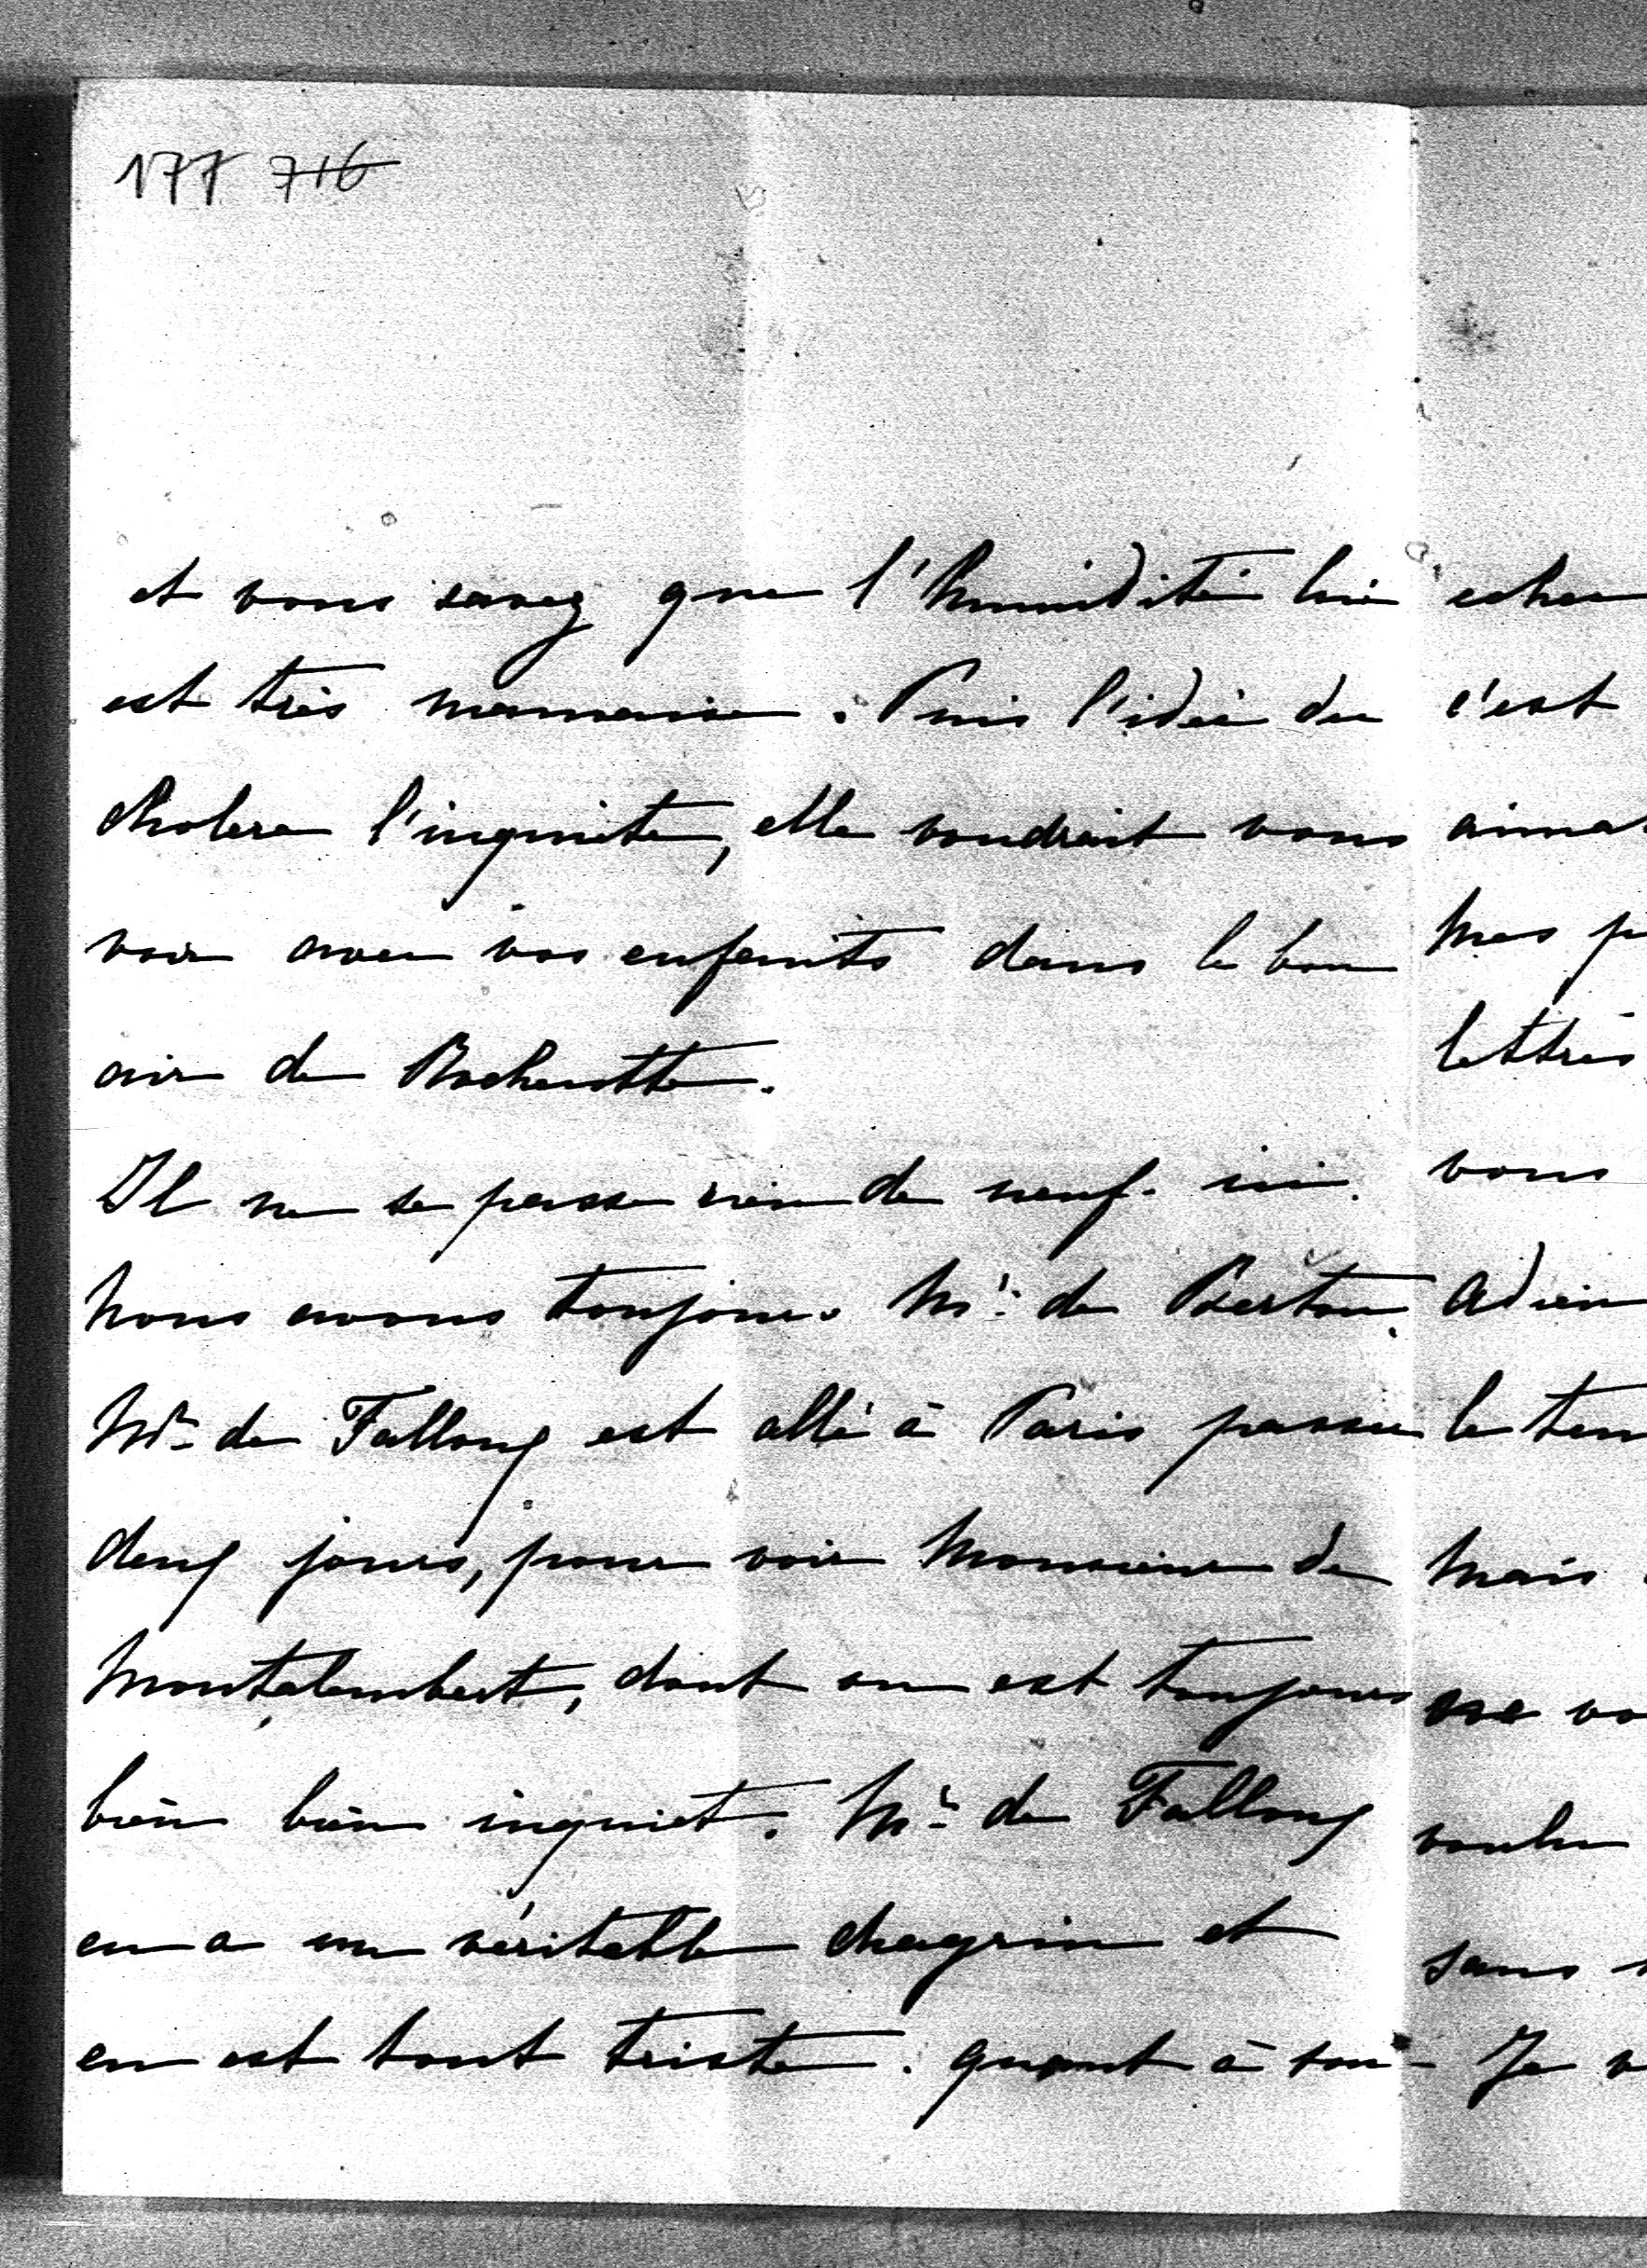 177 716
et vous savez que l'humidité lui
est très mauvaise. Puis l'idée du
cholera l'inquiete, elle voudrait vous
voir avec vos enfants dans le bon
air de Rochecotte.
Il ne se passe rien de neuf ici.
Nous avons toujours Mr. de Bertou.
Mr. de Falloux est allé à Paris passer
deux jours, pour voir Monsieur de
Montalembert, dont on est toujours
bien bien inquiet. Mr. de Falloux
en a un véritable chagrin et
en est tout triste. quant à son-
c'est
aima
Mes p
lettres
vous
Adieu
le tem
Mais
ose vo
voulu
sans
Je v